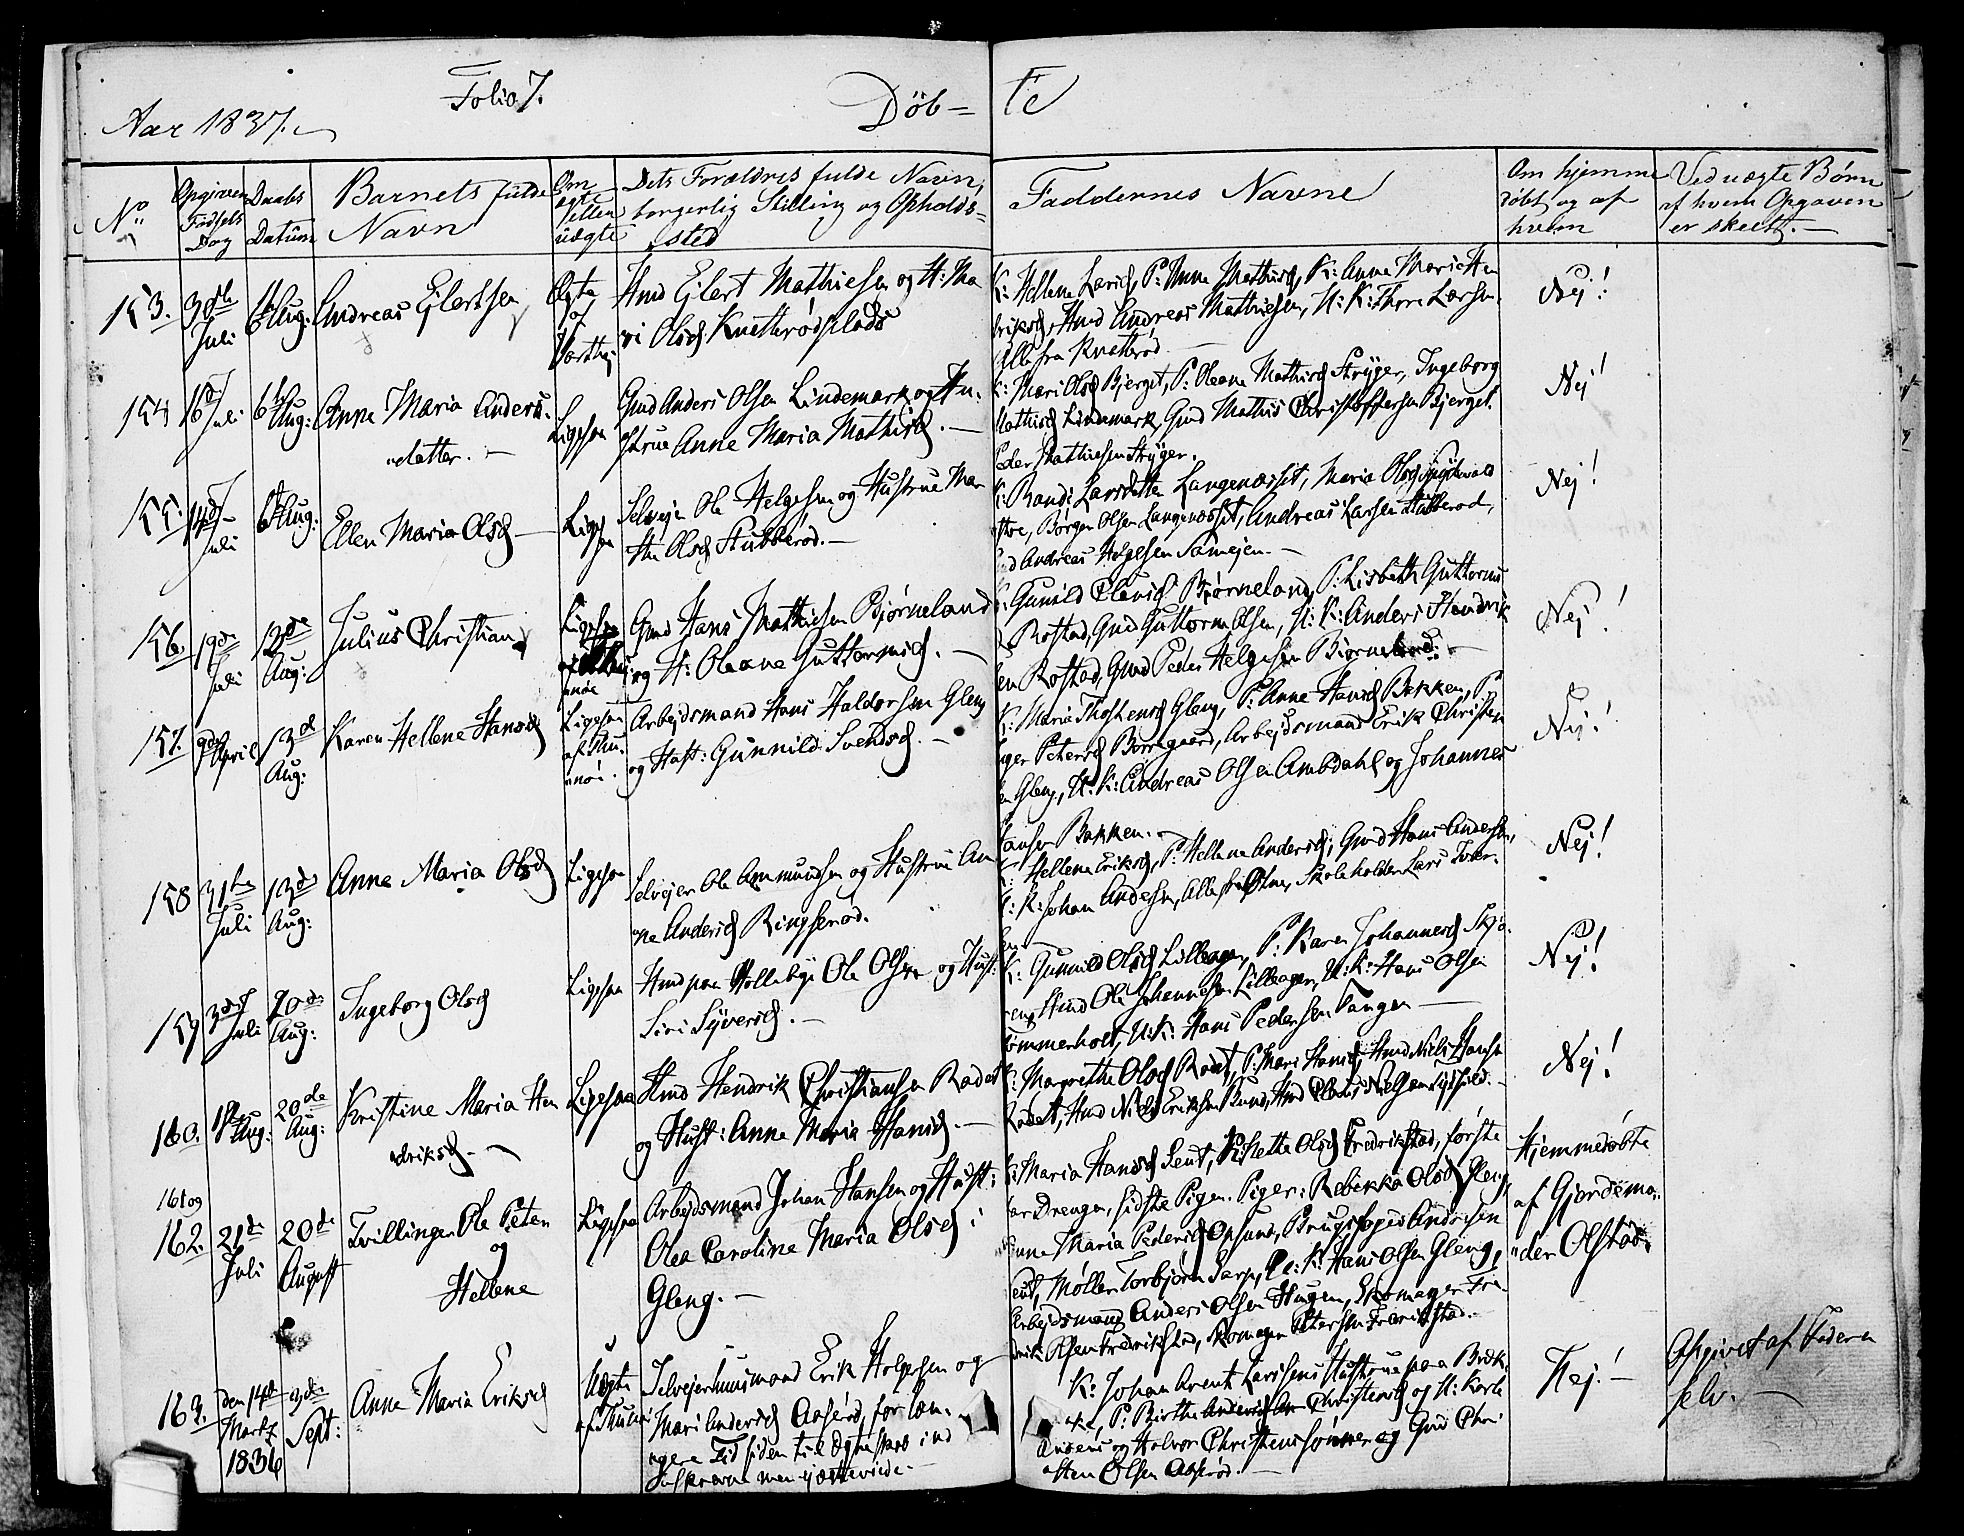 Folio 7.
Döb= te
Aar 1837.
No
Opgiven Fødsels Dag
Daabs Datum
Barnets fulde Navn
Om ægte eller uægte
Dets Forældres fulde Navn,
borgerlig Stilling og Opholds=
sted
Faddernes Navne
Om hjemme
døbt og af
hvem
Ved uægte Børn
af hvem Opgaven
er skeet.
153. 30te Juli 6te Aug: Andreas Ejlertsen
Ægte af
Hmd Ejlert Mathiesen og H: Ma
ri Olsd Knatterødplads
K: Hellene Larsd, P: Anne Mathisd, K: Anne Marie Hen
driksd, Hmd Andreas Mathiesen, U: K: Thore Larsen.
Alle fra Knatterød
Nej!
154 16d Juli 6te Aug: Anne Maria Anders-
datter.
Ligesaa
Gmd Anders Olsen Lindemark og Hu-
strue Anne Maria Mathisd.
K: Mari Olsd Bjerget, P: Oleane Mathisd Stryger, Ingeborg
Mathisd Lindemark, Gmd Mathis Christoffersen Bjerget.
Peder Mathiesen Stryger.
Nej!
155. 14d Juli 6te Aug: Ellen Maria Olsd
Ligesaa
Selvejer Ole Helgesen og Hustrue Mar
the Olsd Stubberød.
K: Randi Larsdatter Langenæsset, Maria Olsd
Børger Olsen Langenæsset, Andreas Larsen Stubberød,
Andreas Helgesen Sameien.
Nej!
156. 19de Juli 13de Aug: Julius Christian
Ligesaa
Gmd Hans Mathisen Bjørneland
og H: Oleane Guttormsd.
K: Gunild Olavsd Bjørneland, P: Lisbeth Guttorms
d Rostad, Gmd Guttorm Olsen, U: K: Anders Hendrik
sen Rostad, Gmd Peder Helgesen Bjørneland.
Nej!
157. 9de April 13d Aug: Karen Hellene Hansd
Ligesaa
af Thu-
nøe.
Arbejdsmand Hans Haldorsen Gleng
og Hust: Gunnild Svendsd.
K: Maria Thostensd Gleng, P: Anne Hansd Bakken, P.
Petersd Borregaard, Arbejdsmand Erik Christen
sen Gleng, U: K: Andreas Olsen Ambdahl og Johannes
Hansen Bakken.
Nej!
158 31te Juli 13de Aug: Anne Maria Olsd
Ligesaa
Selvejer Ole Ammundsen og Hustrue An
ne Andersd Ringserød.
K: Hellene Eriksd, P: Hellene Andersd, Gmd Hans Andersen,
U: K: Johan Andersen, Alle fra Ølner, Skoleholder Lars Iver-
sen
Nej!
159 3de Juli 20de Aug: Ingeborg Olsd
Ligesaa
Hmd paa Hollebye Ole Olsen og Hust:
Siri Syversd.
K: Gunnild Olsd Lilleager, P: Karen Johannesd Skjø-
reng Hmd Ole Johannesen Lilleager, U: K: Hans Olsen
Sommerholt, U: K: Hans Pedersen Tangen
Nej!
160. 1ste Aug: 20de Aug: Kristine Maria Hen
driksd.
Ligesaa
Hmd Hendrik Christiansen Rødet
og Hust: Anne Maria Hansd.
K: Margrethe Olsd Rødet, P: Mari Hansd, Hmd Niels Hansen
Rødet, Hmd Niels Eriksen Bund, Hmd
Nej!
161 og
162. 21de Juli 20de August Tvillinger Ole Peter
og
Hellene
Ligesaa
Arbejdsmand Johan Hansen og Hust:
Olea Caroline Maria Olsd i
Gleng.
K: Maria Hansd Seut, K: Mette Olsd Fredrikstad, første
bar Drengen, sidste Pigen. Piger: Rebekka Olsd Gleng,
Anne Maria Pedersd Opsund, Brugsfoged Andresen
Seut, Møller Torbjørn Sarp, U: K: Hans Olsen Gleng,
Arbejdsmand Anders Olsen Haugen, Skomager Fre
drik Olsen Fredrikstad, Skomager Petersen Fredrikstad.
Hjemmedøbte
af Gjordemo-
der Olstad.
163. den 14de Martz 1836 3de Sept: Anne Maria Eriksd
Uægte
Selvejerhuusmand Erik Helgesen og
Mari Andersd Aaserød, for læn-
gere Tid siden til Ægteskab ind
men ej ægteviede.
K: Johan Arent Larsens Hustrue paa Bræk
ke, P: Birthe Andersd Christensd og H: Karl
Andens og Halvor Christenssønner og Gmd Chri
sten Olsen Aaserød.
Nej!
Opgivet af Faderen
selv.